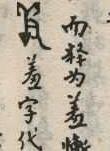 而释为羞惭
羞字代